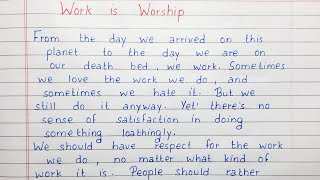 Work is Worship
From the day we arrived on this
planet to the day we are on
our death bed, we work. Sometimes
we love the work we do, and
sometimes we hate it. But we
still do it anyway. Yet' there's no
sense of satisfaction in doing
something loathingly.
We should have respect for the work
we do, no matter what kind of
work it is. People should rather